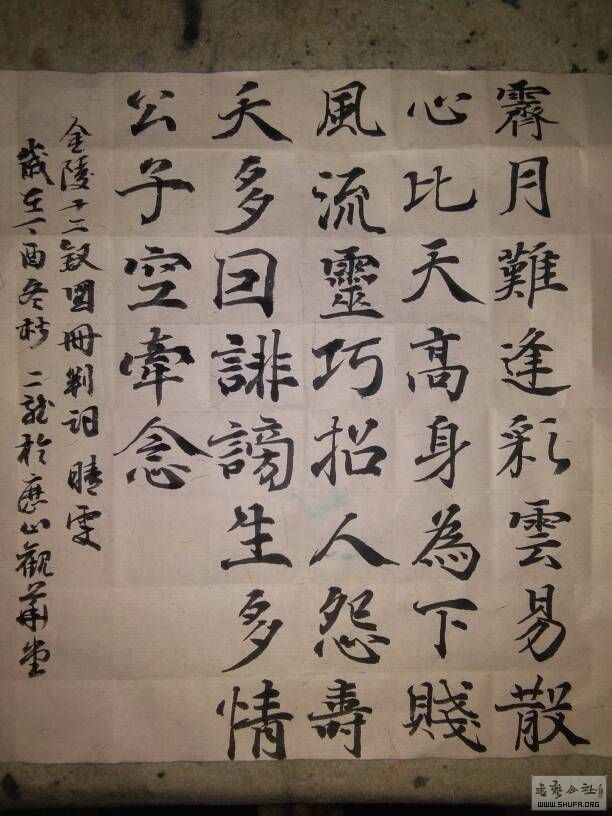 霽月難逢彩雲易散
心比天高身為下賤
風流靈巧招人怨壽
夭多囙誹謗生多情
公子空牽念
金陵十二釵圖冊判詞 晴雯
歲在丁酉冬 二龍於歷山觀堂
書藝公社
WWW.SHUFA.ORG